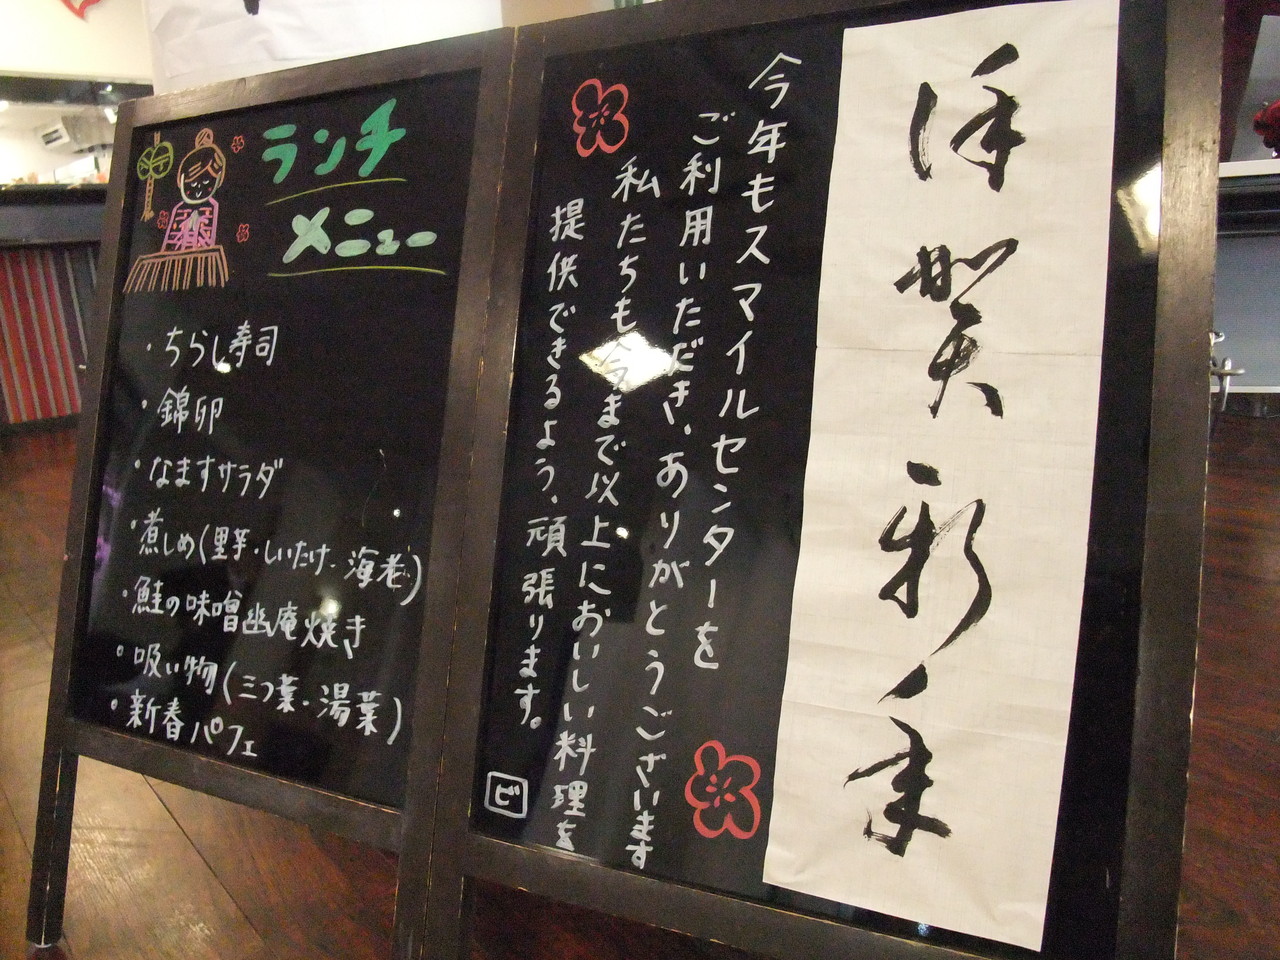 ランチ
メニュー
・ちらし寿司
・錦卵
・なますサラダ
・煮しめ(里芋・しいたけ・海老)
・鮭の味噌幽庵焼き
・吸い物(三つ葉・湯葉)
・新春パフェ
謹賀新年
今年もスマイルセンターを
ご利用いただき、ありがとうございます
私たちも今まで以上においしい料理を
提供できるよう、頑張ります。
ビ